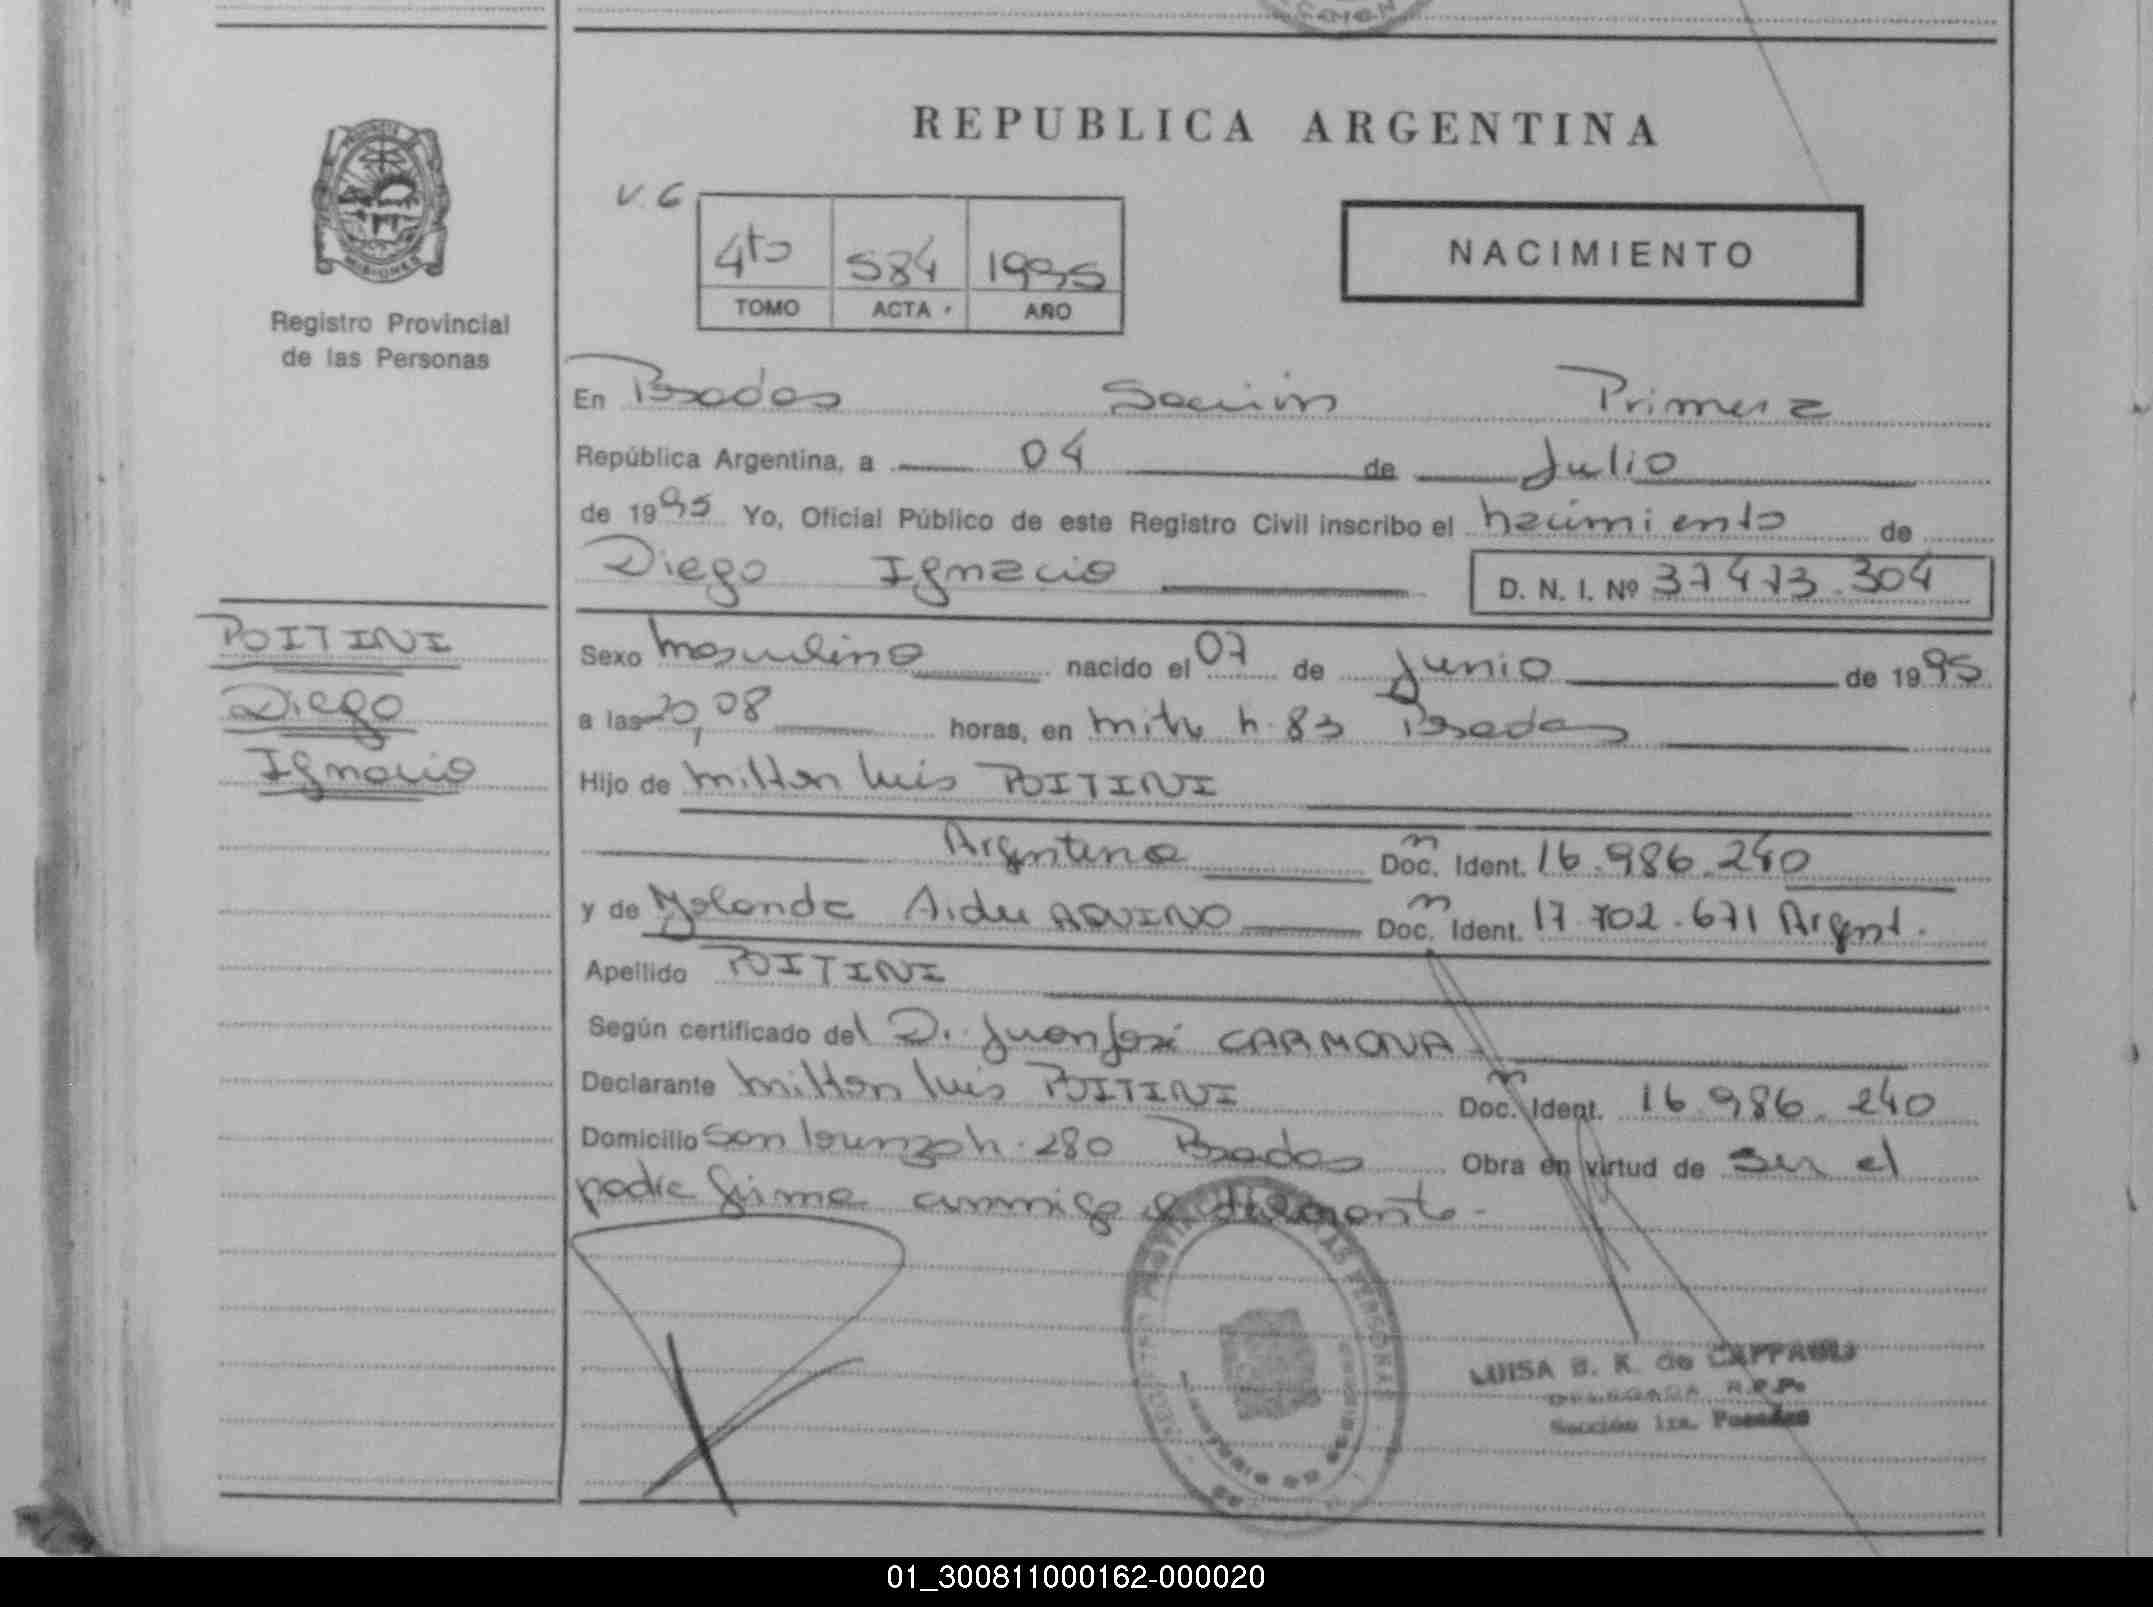 REPUBLICA ARGENTINA
MISIONES
Registro Provincial
de las Personas
V. C
4to 584 1995
TOMO ACTA AÑO
NACIMIENTO
En Posadas Sección Primera
República Argentina, a 04 de Julio
de 1995 Yo, Oficial Público de este Registro Civil inscribo el nacimiento de
Diego Ignacio D. N. I. Nº 37473.304
POITINI
Diego
Ignacio
Sexo Masculino nacido el 07 de Junio de 1995
a las 20,08 horas, en Mitre n. 83 Posadas
Hijo de Milton Luis POITINI
Argentino Doc. Ident. 16.986.240
y de Yolanda Aidee AQUINO Doc. Ident. 17.702.671 Argent.
Apellido POITINI
Según certificado del D. Juan José CARMONA
Declarante Milton Luis POITINI Doc. Ident. 16.986.240
Domicilio San Lorenzo n. 280 Posadas Obra en virtud de ser el
padre firma conmigo
LUISA B. K. de
DELEGADA R.P.P.
Sección 1ra. Posadas
01_300811000162-000020